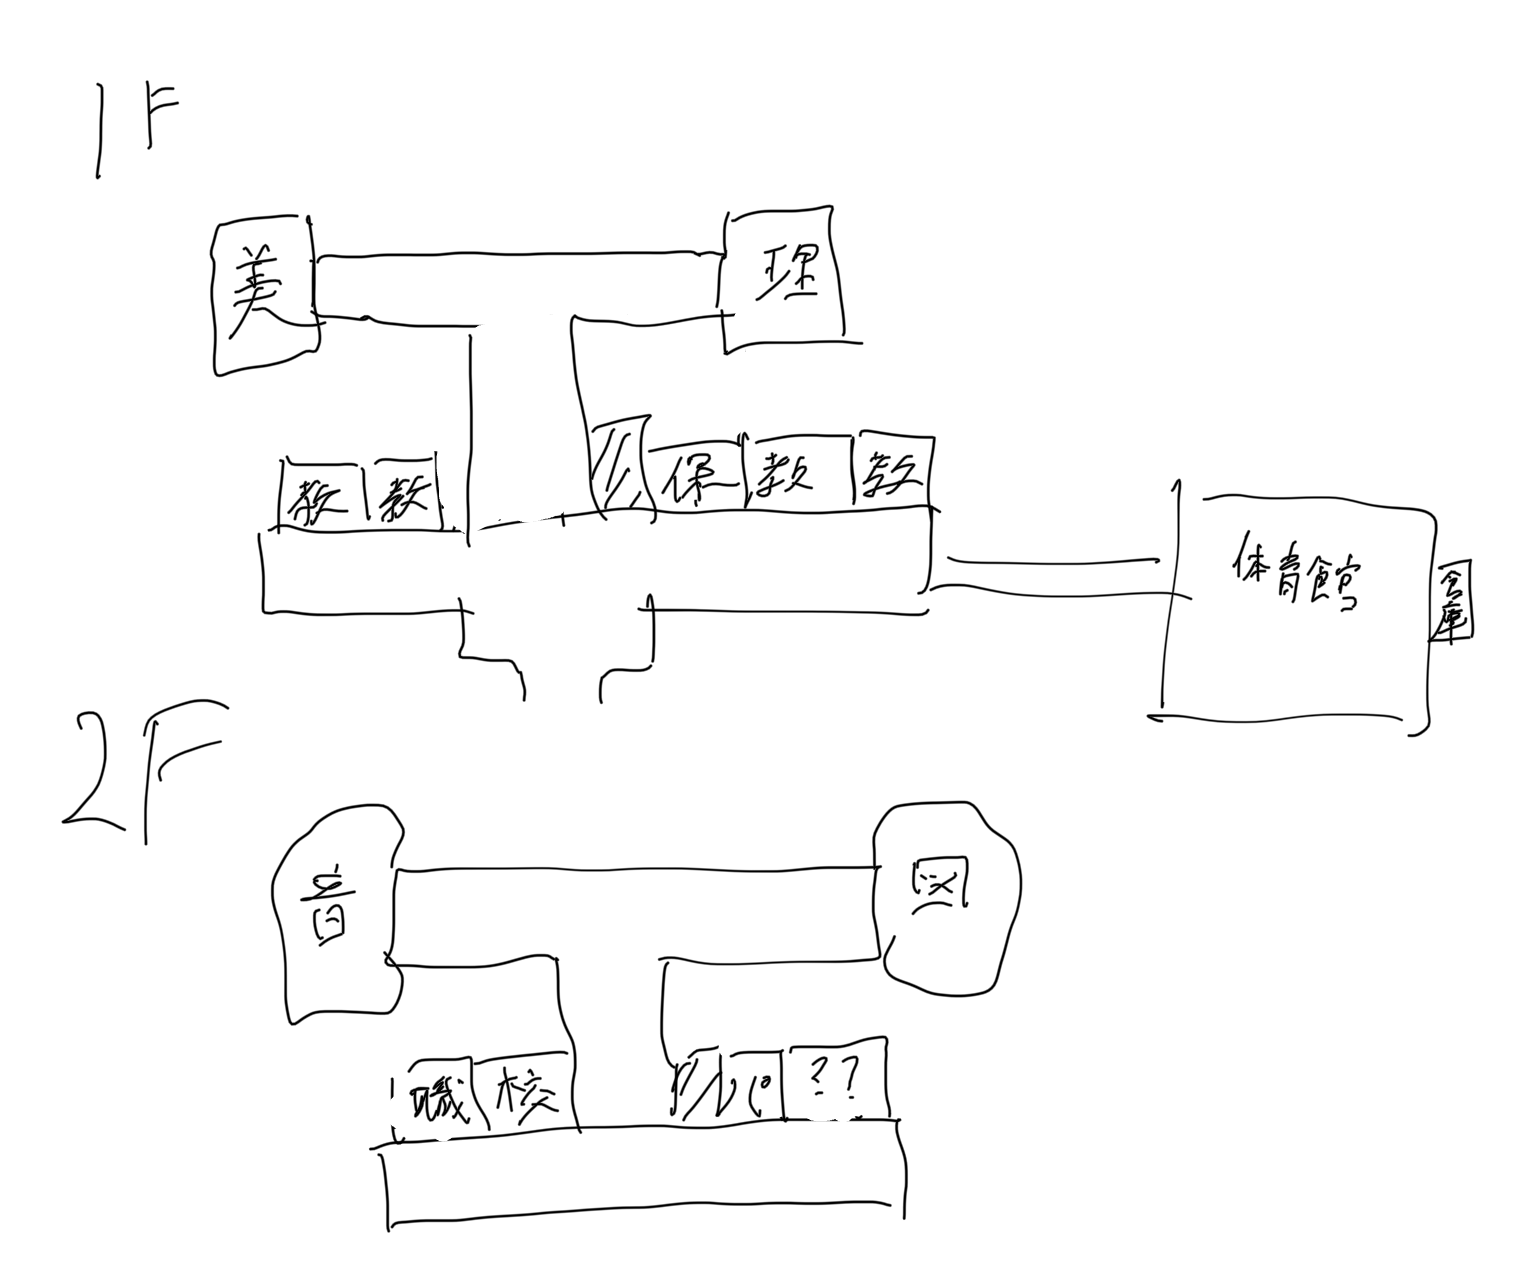 1F
美
理
教
教
保
教
教
体育館
倉庫
2F
音
図
職
校
パ
??